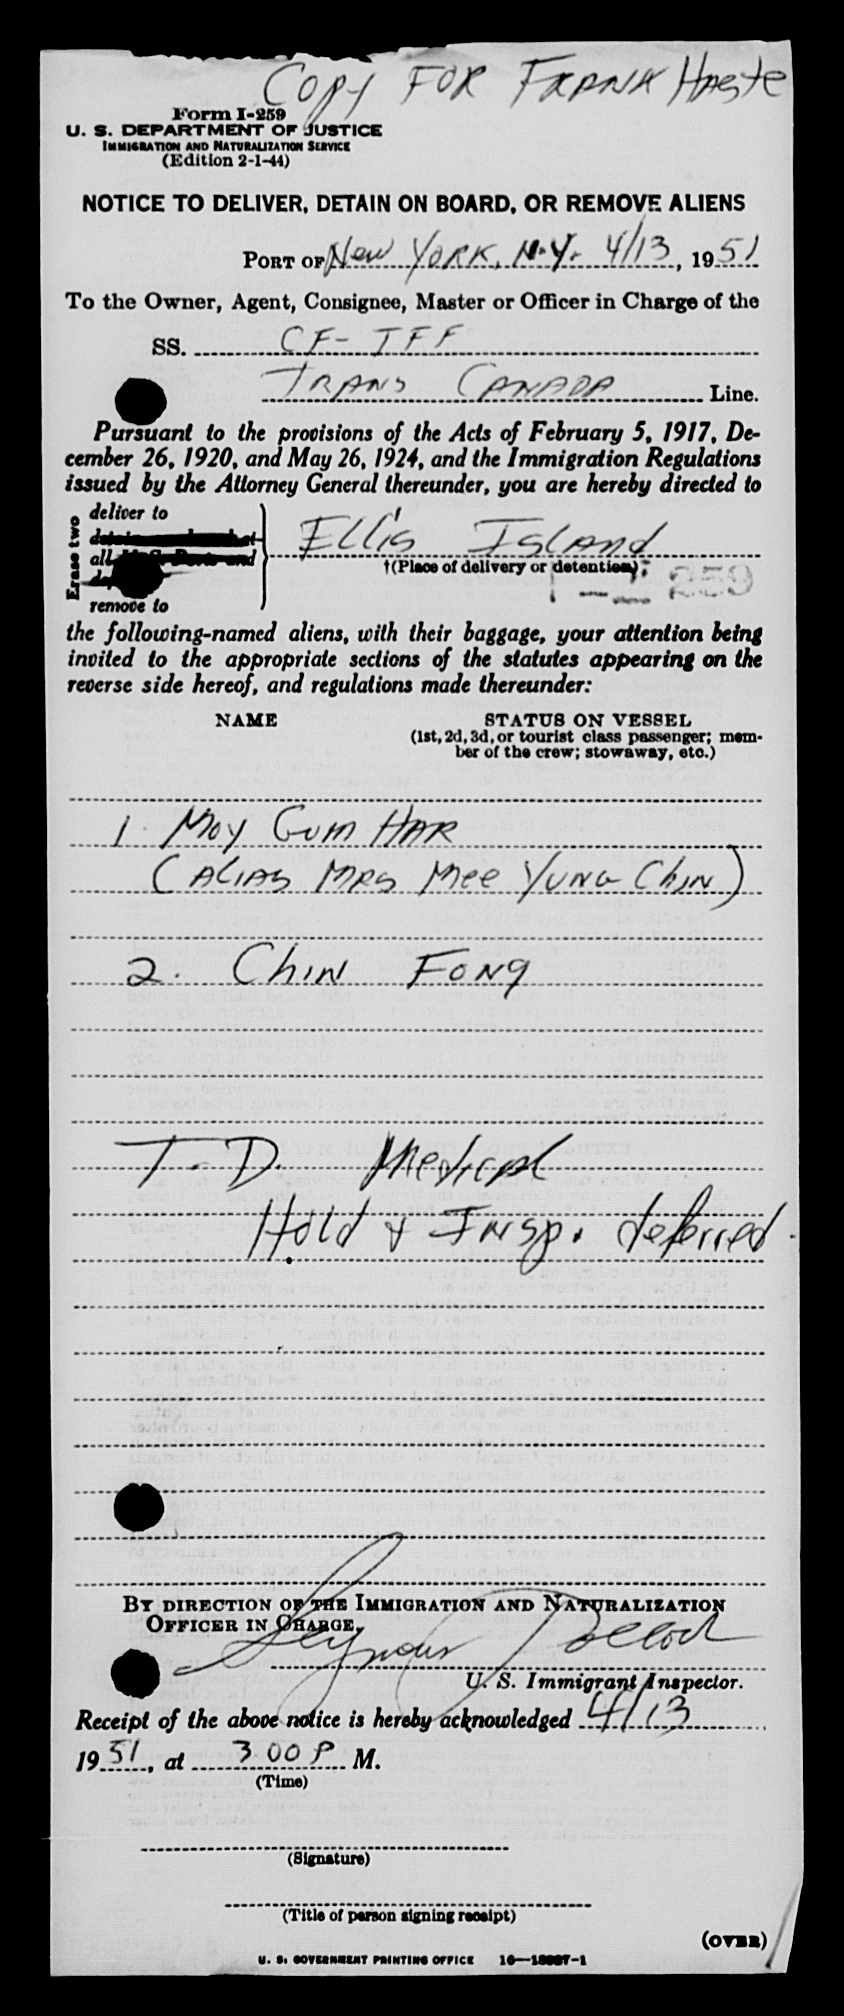 Copy FOR FRANK Haste
Form I-259
U. S. DEPARTMENT OF JUSTICE
IMMIGRATION AND NATURALIZATION SERVICE
(Edition 2-1-44)
NOTICE TO DELIVER, DETAIN ON BOARD, OR REMOVE ALIENS
PORT OF New YORK, N.Y. 4/13, 1951
To the Owner, Agent, Consignee, Master or Officer in Charge of the
SS. CF-TFF
TRANS CANADA Line.
Pursuant to the provisions of the Acts of February 5, 1917, De-
cember 26, 1920, and May 26, 1924, and the Immigration Regulations
issued by the Attorney General thereunder, you are hereby directed to
Erase two
deliver to
all
remove to
Ellis Island
†(Place of delivery or detention);
I-259
the following-named aliens, with their baggage, your attention being
invited to the appropriate sections of the statutes appearing on the
reverse side hereof, and regulations made thereunder:
NAME STATUS ON VESSEL
(1st, 2d, 3d, or tourist class passenger; mem-
ber of the crew; stowaway, etc.)
1. Moy Gum HAR
(ALIAS MRS Mee YUNG Chin)
2. Chin Fong
T.D. Medical
Hold & Insp. deferred.
BY DIRECTION OF THE IMMIGRATION AND NATURALIZATION
OFFICER IN CHARGE.
Seymour
U. S. Immigrant Inspector.
Receipt of the above notice is hereby acknowledged 4/13
1951, at 3 00 P M.
(Time)
(Signature)
(Title of person signing receipt)
(OVER)
U. S. GOVERNMENT PRINTING OFFICE